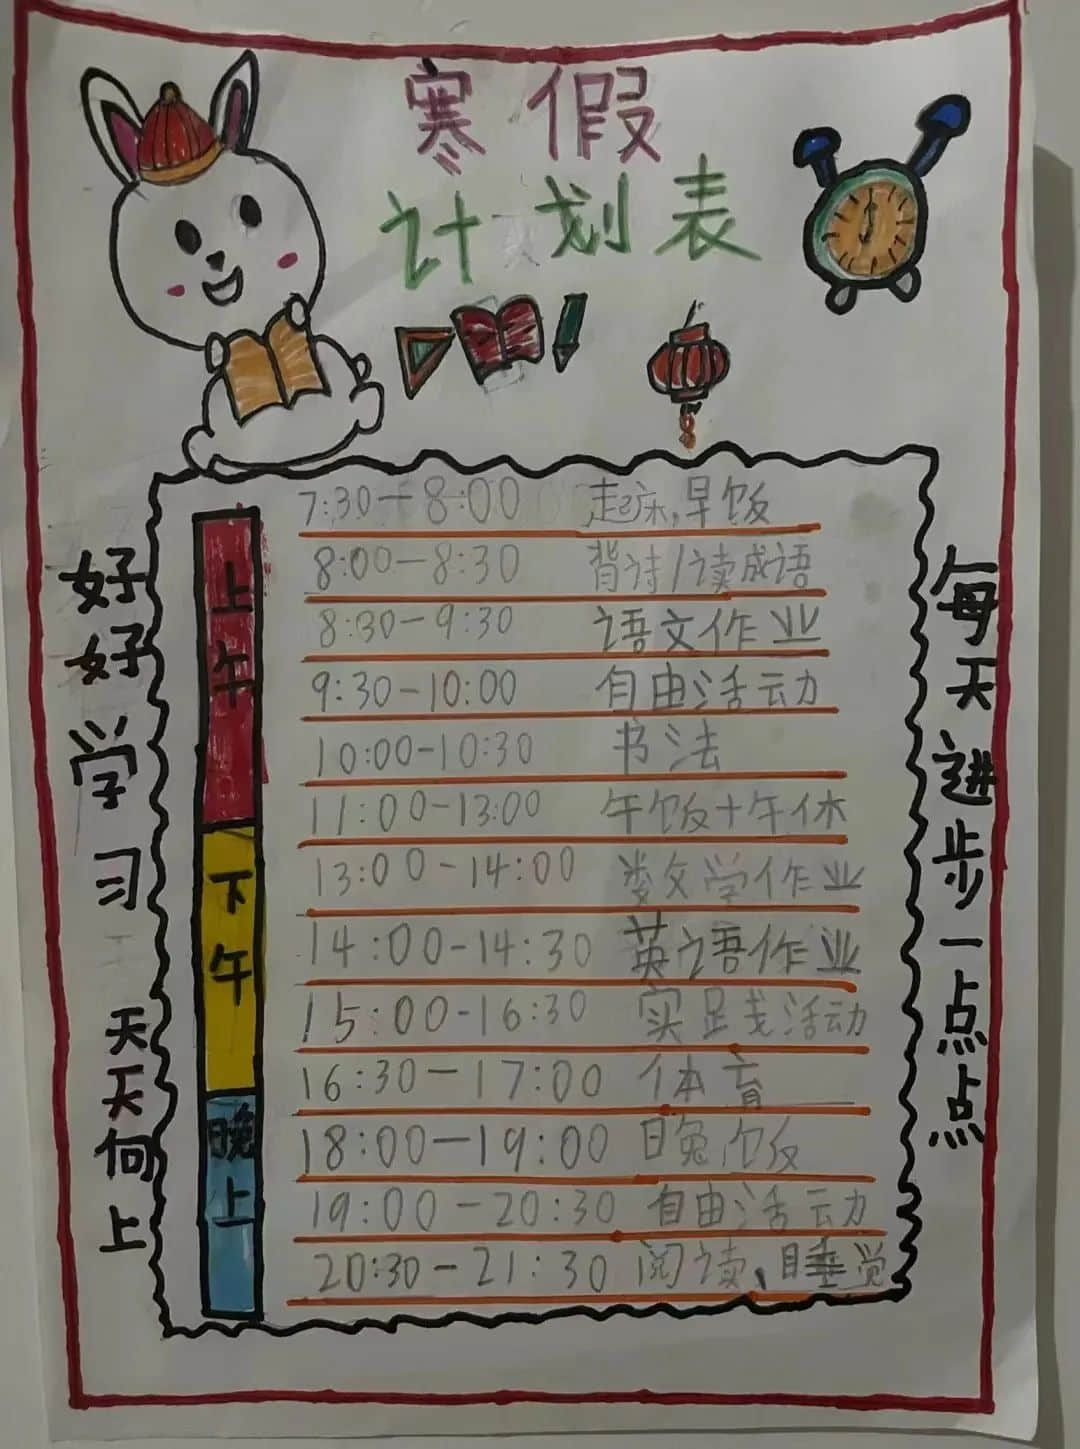 寒假
计划表
好好学习 天天向上
每天进步一点点
上午
7:30-8:00 起床,早饭
8:00-8:30 背诗/读成语
8:30-9:30 语文作业
9:30-10:00 自由活动
10:00-10:30 书法
11:00-13:00 午饭+午休
下午
13:00-14:00 数学作业
14:00-14:30 英语作业
15:00-16:30 实践活动
16:30-17:00 体育
晚上
18:00-19:00 晚饭
19:00-20:30 自由活动
20:30-21:30 阅读、睡觉